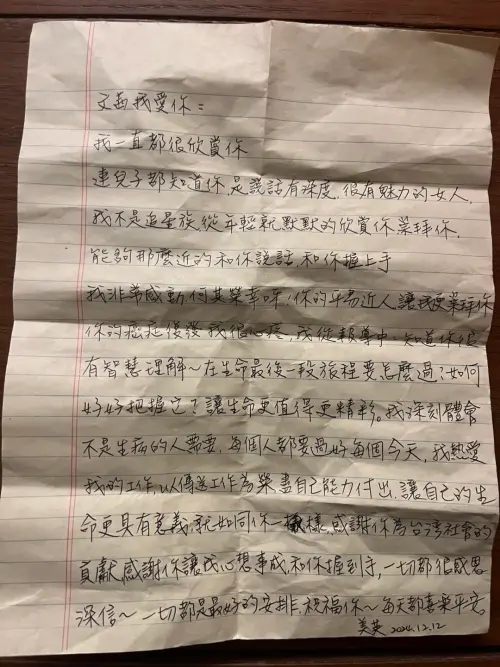 文茜我愛你：
我一直都很欣賞你
連兒子都知道你，是說話有深度，很有魅力的女人，
我不是追星族，從年輕就默默的欣賞你，崇拜你，
能夠那麼近的和你說話，和你握上手
我非常感動何其榮幸呀！你的平易近人讓我更崇拜你
你的癌症復發我很心疼，我從報導中，知道你很
有智慧理解～在生命最後一段旅程要怎麼過？如何
好好把握它？讓生命更值得更精彩。我深刻體會
不是生病的人需要，每個人都要過好每個今天，我熱愛
我的工作，以傳送工作為榮盡自己能力付出，讓自己的生
命更具有意義，就如同你一樣，感謝你為台灣社會的
貢獻，感謝你讓我心想事成，和你握到手，一切都很感恩
深信～一切都是最好的安排，祝福你～每天都喜樂平安
美英 2024.12.12